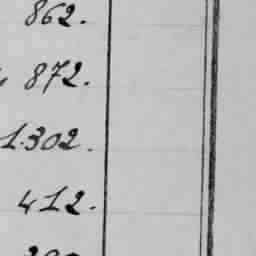 862.
872.
1.302.
412.